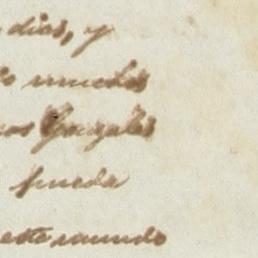 dias, y
muchos
Gonzales
pueda
este mundo